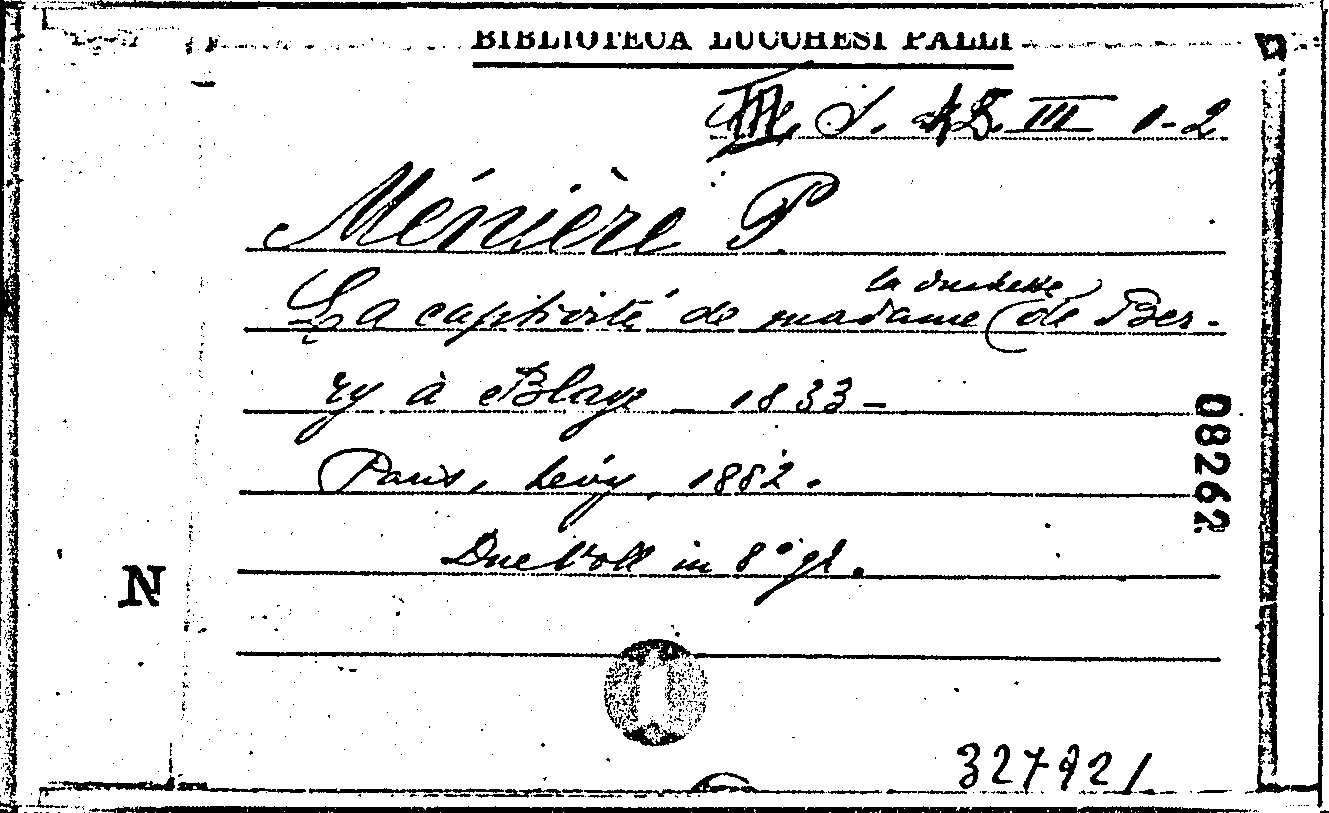 BIBLIOTECA LUCCHESI PALLI
S. III 1-2
Ménière P.
La captivité de madame (la duchesse) de Ber-
ry à Blaye 1833 -
Paris, Lévy, 1882.
Due Voll in 8° gr.
08262
N
327921